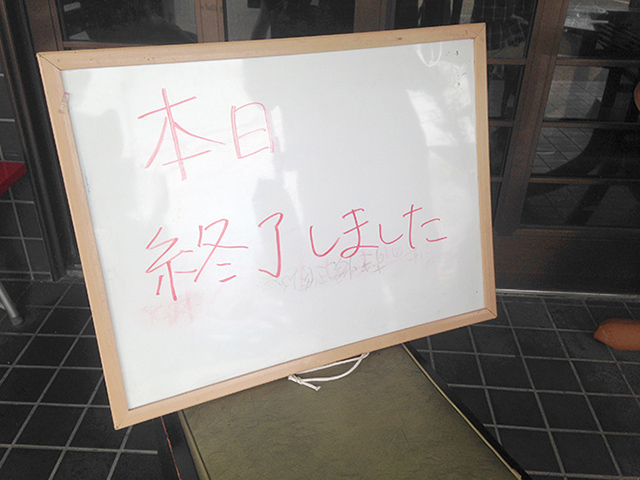 本日
終了しました